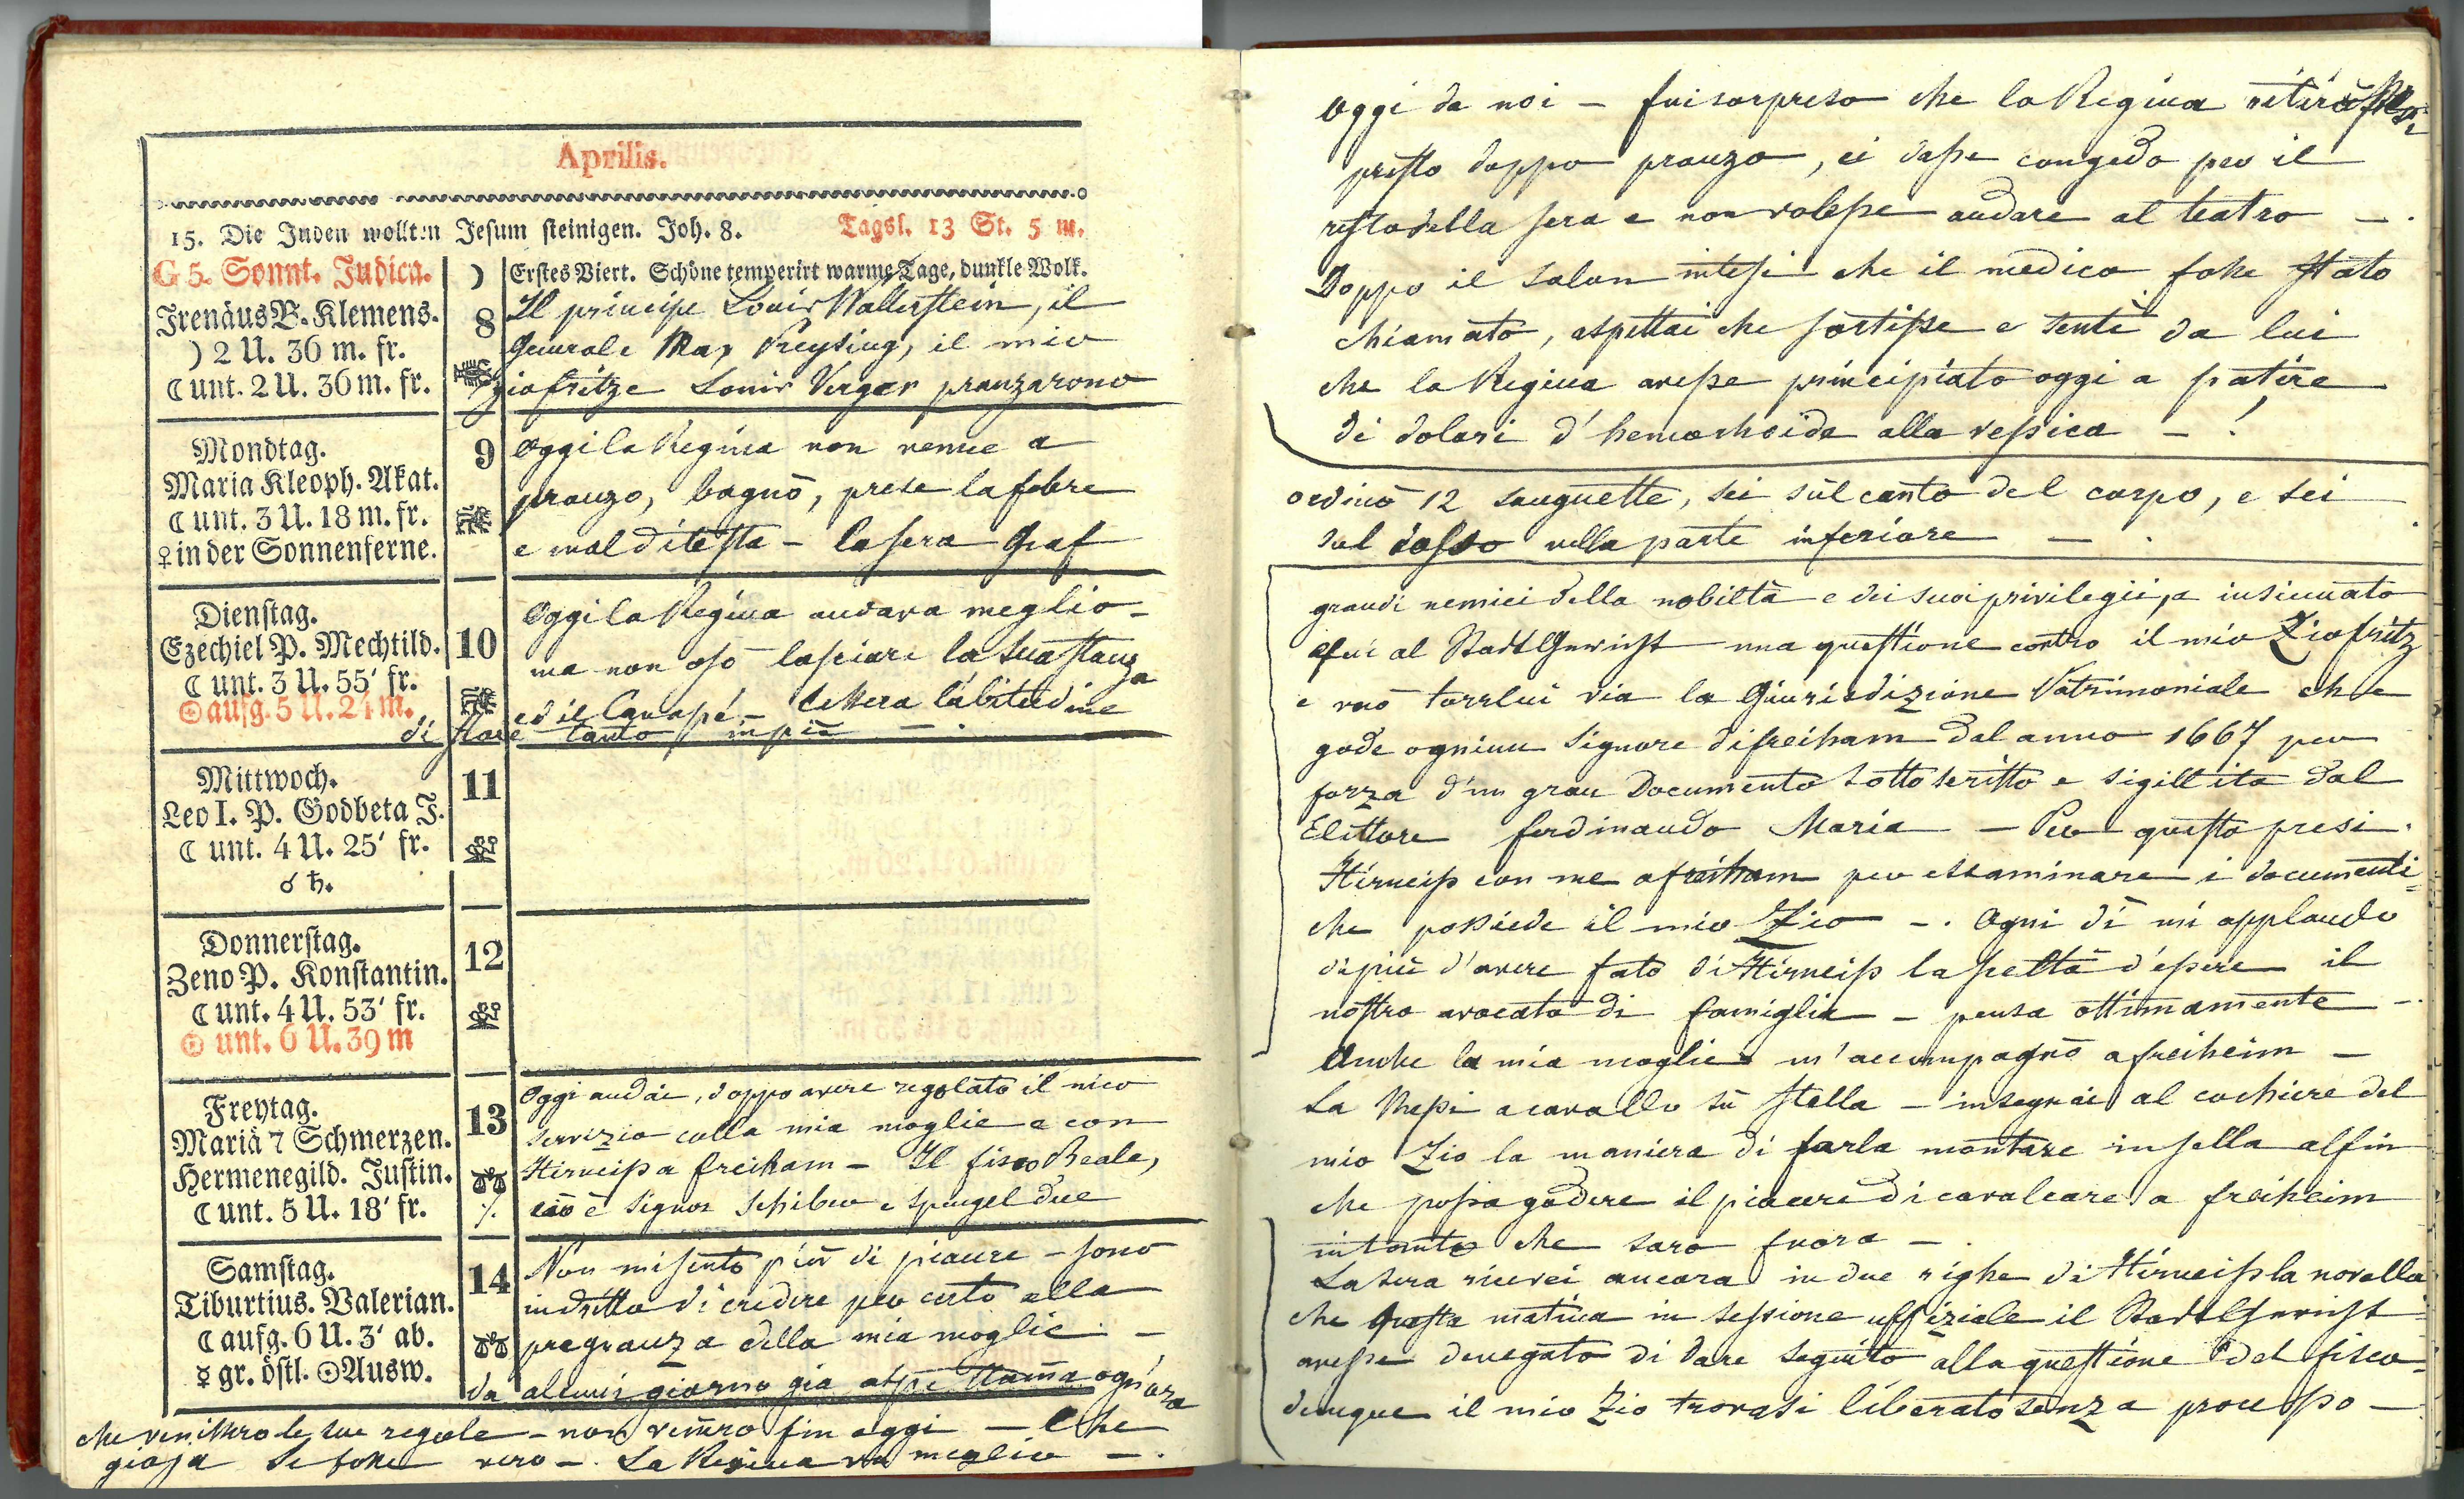 Aprilis.
15. Die Juden wollten Jesum steinigen. Joh. 8. Tagsl. 13 St. 5 m.
G 5. Sonnt. Judica. ☽ Erstes Viert. Schöne temperirt warme Tage, dunkle Wolk.
Irenäus B. Klemens. 8
☽ 2 U. 36 m. fr.
☾ unt. 2 U. 36 m. fr.
Il principe Louis Wallerstein, il
Generale Max Preysing, il mio
zio fritz e Louis Verger pranzarono
Mondtag. 9
Maria Kleoph. Akat.
☾ unt. 3 U. 18 m. fr.
♀ in der Sonnenferne.
Oggi la Regina non venne a
pranzo, bagnò, prese la febre
e mal di testa – la sera Graf
Dienstag. 10
Ezechiel P. Mechtild.
☾ unt. 3 U. 55' fr.
☉ aufg. 5 U. 21 m.
Oggi la Regina andava meglio –
ma non osò lasciare la sua stanza
ed il Canapé –
di stare tanto in piè –.
Mittwoch. 11
Leo I. P. Godbeta J.
☾ unt. 4 U. 25' fr.
☌ ♄.
Donnerstag. 12
Zeno P. Konstantin.
☾ unt. 4 U. 53' fr.
☉ unt. 6 U. 39 m
Freytag. 13
Mariä 7 Schmerzen.
Hermenegild. Justin.
☾ unt. 5 U. 18' fr.
Oggi andai, doppo avere regolato il mio
servizio colla mia moglie e con
Hirneiß a freiham – Il fisco Reale,
ciò è Signor Schiber e Spengel due
Samstag. 14
Tiburtius. Valerian.
☾ aufg. 6 U. 3' ab.
☿ gr. östl. ☉ Ausw.
Non mi sento più di piacere – sono
indritto di credere per certo alla
pregnanza della mia moglie –
da alcuni giorno già aspettama ogn'ora
che venissero le sue regole – non vennero fin oggi – Che
gioja se fosse vero –. La Regina va meglio –.
oggi da noi – fui sorpreso che la Regina ritirassesi
presto doppo pranzo, ci dasse congedo per il
resto della sera e non volesse andare al teatro –.
Doppo il salon intesi che il medico fosse stato
chiamato, aspettai che sortisse e sentì da lui
che la Regina avesse principiato oggi a patire
di dolori d'hemorhoide alla vessica – !
ordinò 12 sanguette, sei sul canto del corpo, e sei
sul dosso nella parte inferiore –.
grandi nemici della nobiltà e dei suoi privilegii, a insinuato
al StadtGericht una questione contro il mio Zio fritz
e vuò torrlui via la Giurisdizione Patrimoniale che
gode ognium Signore di freiham dal anno 1667 per
forza d'un gran Documento sottoscritto e sigillita dal
Elettore ferdinando Maria – Per questo presi
Hirneiß con me a freiham per essaminare i documenti
che possiede il mio Zio –. Ogni dì mi applaudo
di più d'avere fato di Hirneiß la scelta d'essere il
nostro avocato di famiglia – pensa ottimamente –.
Anche la mia moglie m'accompagnò a freiheim –
La messi a cavallo sù Stella – insegnai al cochiere del
mio Zio la maniera di farla montare in sella al fin
che possa godere il piacere di cavalcare a freiheim
intanto che saro fuora –.
La sera ricevei ancora in due righe di Hirneiß la novella
che questa matina in sessione uffiziale il StadtGericht
avesse denegato di dare seguito alla questione del fisco
dunque il mio Zio trovasi liberato senza processo –